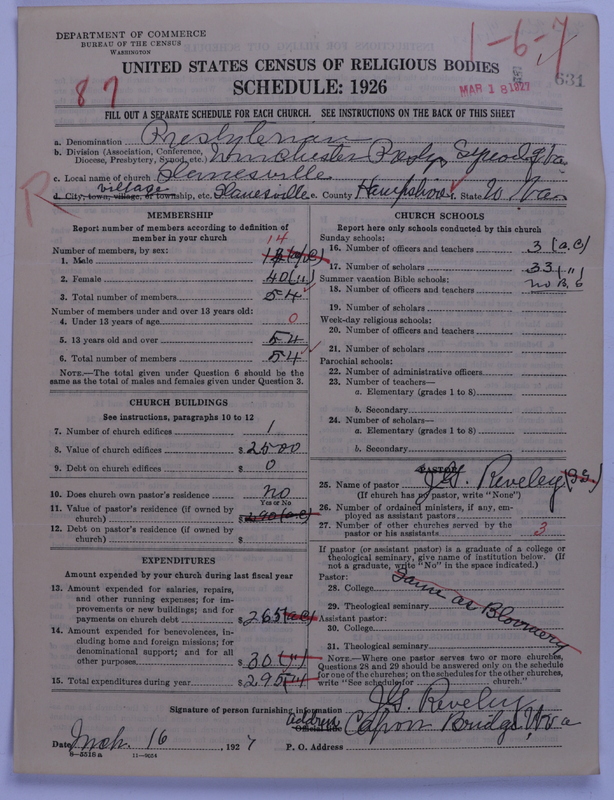 DEPARTMENT OF COMMERCE
BUREAU OF THE CENSUS
WASHINGTON
1-6-7
UNITED STATES CENSUS OF RELIGIOUS BODIES
SCHEDULE: 1926
87
MAR 18 1927
631
FILL OUT A SEPARATE SCHEDULE FOR EACH CHURCH. SEE INSTRUCTIONS ON THE BACK OF THIS SHEET
a. Denomination Presbyterian
b. Division (Association, Conference, Diocese, Presbytery, Synod, etc.) Winchester Presby, Synod of Va
c. Local name of church Slanesville
R
d. City, town, village, or township, etc. village Slanesville e. County Hampshire f. State W Va
MEMBERSHIP
Report number of members according to definition of member in your church
Number of members, by sex:
14
1. Male
2. Female 40 (")
3. Total number of members 54
Number of members under and over 13 years old:
4. Under 13 years of age 0
5. 13 years old and over 54
6. Total number of members 54
NOTE.—The total given under Question 6 should be the same as the total of males and females given under Question 3.
CHURCH BUILDINGS
See instructions, paragraphs 10 to 12
7. Number of church edifices 1
8. Value of church edifices $2500
9. Debt on church edifices $0
10. Does church own pastor's residence no
Yes or No
11. Value of pastor's residence (if owned by church) $
12. Debt on pastor's residence (if owned by church) $
EXPENDITURES
Amount expended by your church during last fiscal year
13. Amount expended for salaries, repairs, and other running expenses; for improvements or new buildings; and for payments on church debt $265 (a.c)
14. Amount expended for benevolences, including home and foreign missions; for denominational support; and for all other purposes $30 (")
15. Total expenditures during year $295 (")
CHURCH SCHOOLS
Report here only schools conducted by this church
Sunday schools:
16. Number of officers and teachers 3 (a.c)
17. Number of scholars 33 (")
Summer vacation Bible schools:
18. Number of officers and teachers no B, S
19. Number of scholars
Week-day religious schools:
20. Number of officers and teachers
21. Number of scholars
Parochial schools:
22. Number of administrative officers
23. Number of teachers—
a. Elementary (grades 1 to 8)
b. Secondary
24. Number of scholars—
a. Elementary (grades 1 to 8)
b. Secondary
PASTOR
25. Name of pastor J.G. Reveley
(If church has no pastor, write "None")
26. Number of ordained ministers, if any, employed as assistant pastors
27. Number of other churches served by the pastor or his assistants 3
If pastor (or assistant pastor) is a graduate of a college or theological seminary, give name of institution below. (If not a graduate, write "No" in the space indicated.)
Pastor:
28. College
Same as Bloomery
29. Theological seminary
Assistant pastor:
30. College
31. Theological seminary
NOTE.—Where one pastor serves two or more churches, Questions 28 and 29 should be answered only on the schedule for one of the churches; on the schedules for the other churches, write "See schedule for church."
Signature of person furnishing information J.G. Reveley
Address Capon Bridge, W.va
Date Mch. 16, 1927 P. O. Address
8—5516 a 11—9664